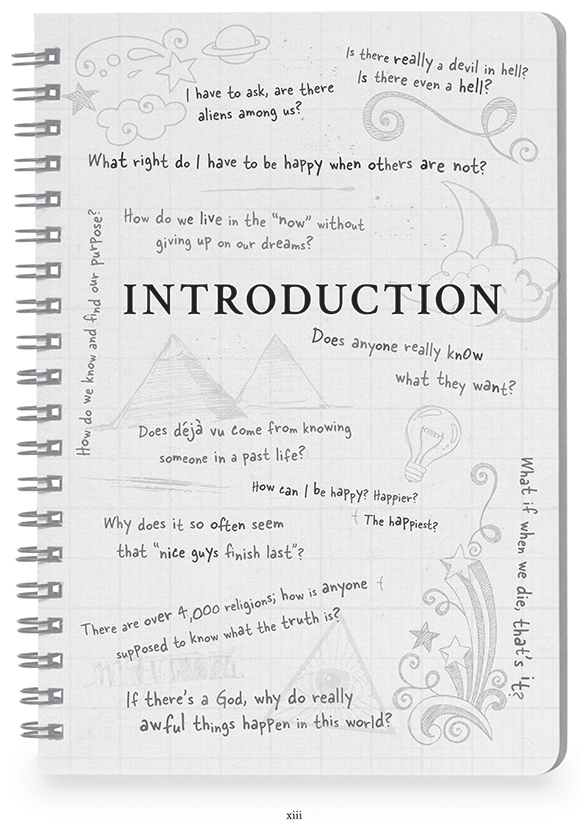 Is there really a devil in hell?
Is there even a hell?
I have to ask, are there
aliens among us?
What right do I have to be happy when others are not?
How do we live in the "now" without
giving up on our dreams?
How do we know and find our purpose?
INTRODUCTION
Does anyone really know
what they want?
Does déjà vu come from knowing
someone in a past life?
How can I be happy? Happier?
The happiest?
Why does it so often seem
that "nice guys finish last"?
What if when we die, that's it?
There are over 4,000 religions; how is anyone
supposed to know what the truth is?
If there's a God, why do really
awful things happen in this world?
xiii